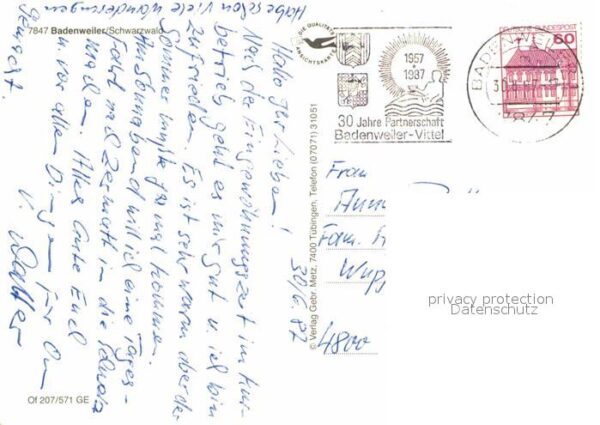 7847 Badenweiler/Schwarzwald
Habe schon viele Wanderungen
gemacht.
30/6. 87
Hallo Ihr Lieben!
Nach der Eingewöhnungszeit im Kur-
betrieb geht es mir gut u. ich bin
zufrieden. Es ist sehr warm aber der
Sommer mußte ja mal kommen.
will ich eine Tages-
Fahrt nach Zermatt in die Schweiz
machen. Alles Gute Euch
u. vor allen Dingen für
Of 207/571 GE
© Verlag Gebr. Metz, 7400 Tübingen, Telefon (07071) 31051
DIE QUALITÄTS
ANSICHTSKARTE
1957
1987
30 Jahre Partnerschaft
Badenweiler-Vittel
BADENWEIL
7847
DEUTSCHE BUNDESPOST
60
Frau
Fam.
Wupp
4800
privacy protection
Datenschutz